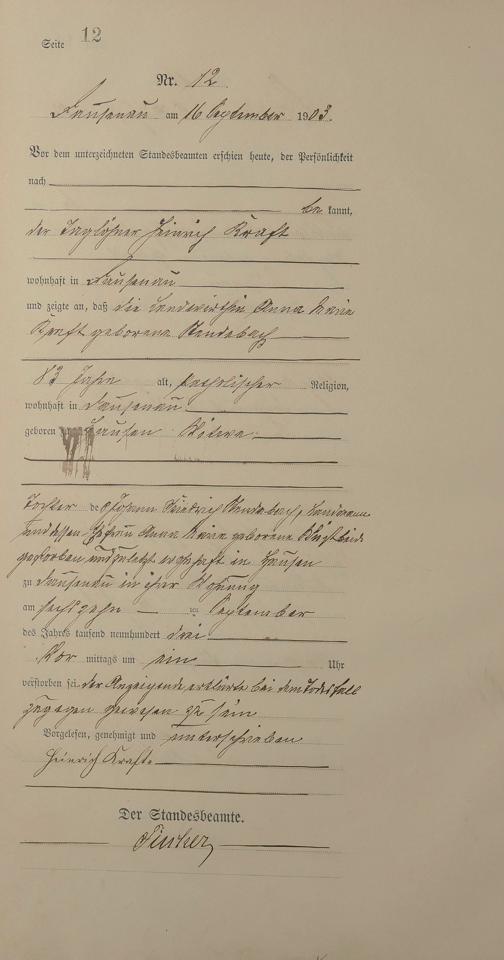 Seite 12
Nr. 12.
Dausenau am 16 September 1903.
Vor dem unterzeichneten Standesbeamten erschien heute, der Persönlichkeit
nach
be kannt,
der Taglöhner Heinrich Kraft
wohnhaft in Dausenau
und zeigte an, daß die Landwirthin Anna Maria
Kraft geborene
83 Jahre alt, katholischer Religion,
wohnhaft in Dausenau
geboren Hausen
Tochter des Johann Friedrich
und dessen Ehefrau Anna Maria geborene
gestorben und zuletzt wohnhaft in Hausen
zu Dausenau in ihrer Wohnung
am sechszehn ten September
des Jahres tausend neunhundert drei
Vor mittags um ein Uhr
verstorben sei. der Anzeigende erklärte bei dem Todesfall
zugegen gewesen zu sein
Vorgelesen, genehmigt und unterschrieben
Heinrich Kraft
Der Standesbeamte.